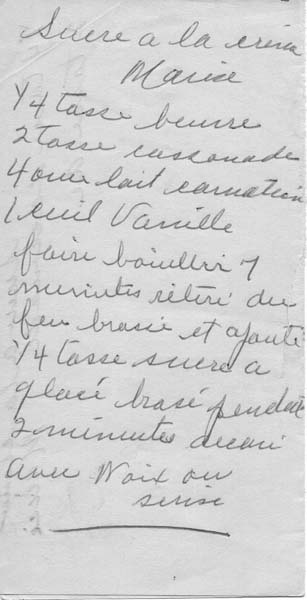 Sucre a la crème
Marise
1/4 tasse beurre
2 tasse cassonade
4 onc lait carnation
1 cuil Vanille
faire bouillir 7
minutes retiré du
feu brassé et ajouté
1/4 tasse sucre a
glacé brasé pendant
2 minutes decoré
avec Noix ou
serise